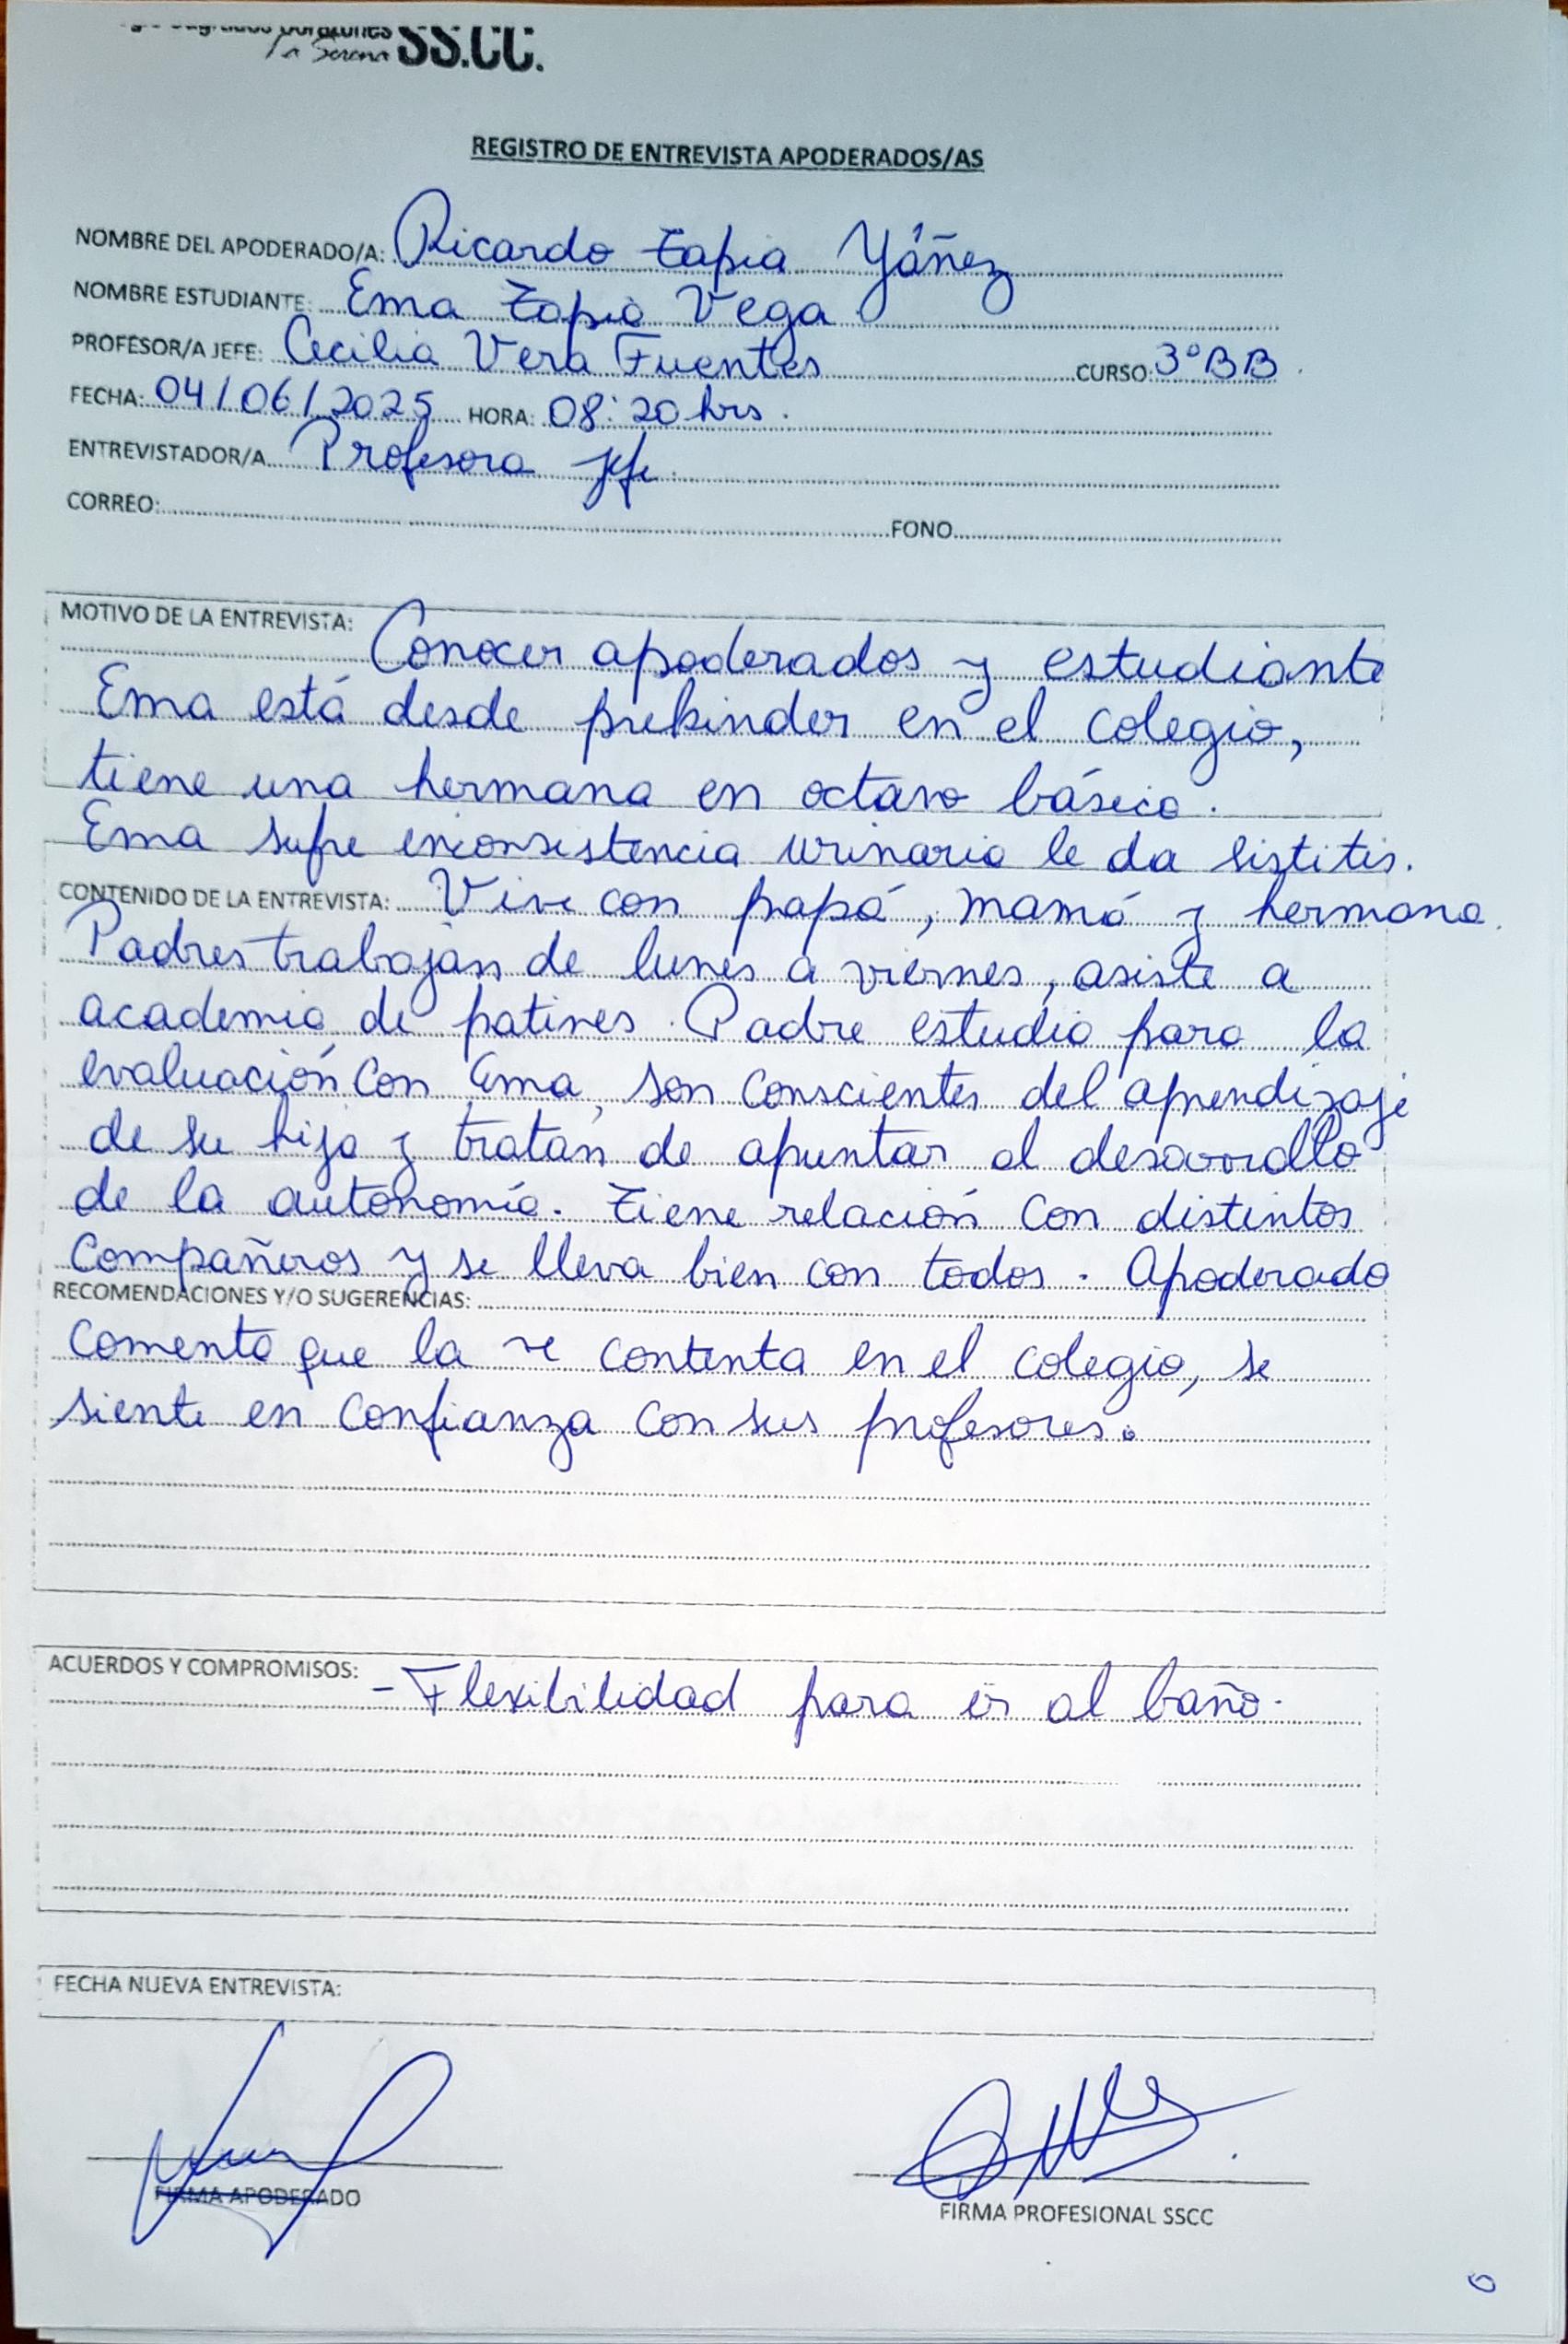 Corazones
La Serena SS.CC.
REGISTRO DE ENTREVISTA APODERADOS/AS
NOMBRE DEL APODERADO/A: Ricardo Zapia Yáñez
NOMBRE ESTUDIANTE: Ema Zapia Vega
PROFESOR/A JEFE: Cecilia Vera Fuentes CURSO: 3°BB
FECHA: 04/06/2025 HORA: 08:20 hrs.
ENTREVISTADOR/A Profesora jefe.
CORREO: FONO
MOTIVO DE LA ENTREVISTA: Conocer apoderados y estudiante
Ema está desde prekinder en el colegio,
tiene una hermana en octavo básico.
Ema sufre inconsistencia urinaria le da sistitis.
CONTENIDO DE LA ENTREVISTA: Vive con papá, mamá y hermana.
Padres trabajan de lunes a viernes, asiste a
academia de patines. Padre estudia para la
evaluación con Ema, son conscientes del aprendizaje
de su hija y tratan de apuntar al desarrollo
de la autonomía. Tiene relación con distintos
compañeros y se lleva bien con todos. Apoderado
RECOMENDACIONES Y/O SUGERENCIAS:
comenta que la ve contenta en el colegio, se
siente en confianza con sus profesores.
ACUERDOS Y COMPROMISOS: - Flexibilidad para ir al baño.
FECHA NUEVA ENTREVISTA:
FIRMA APODERADO FIRMA PROFESIONAL SSCC